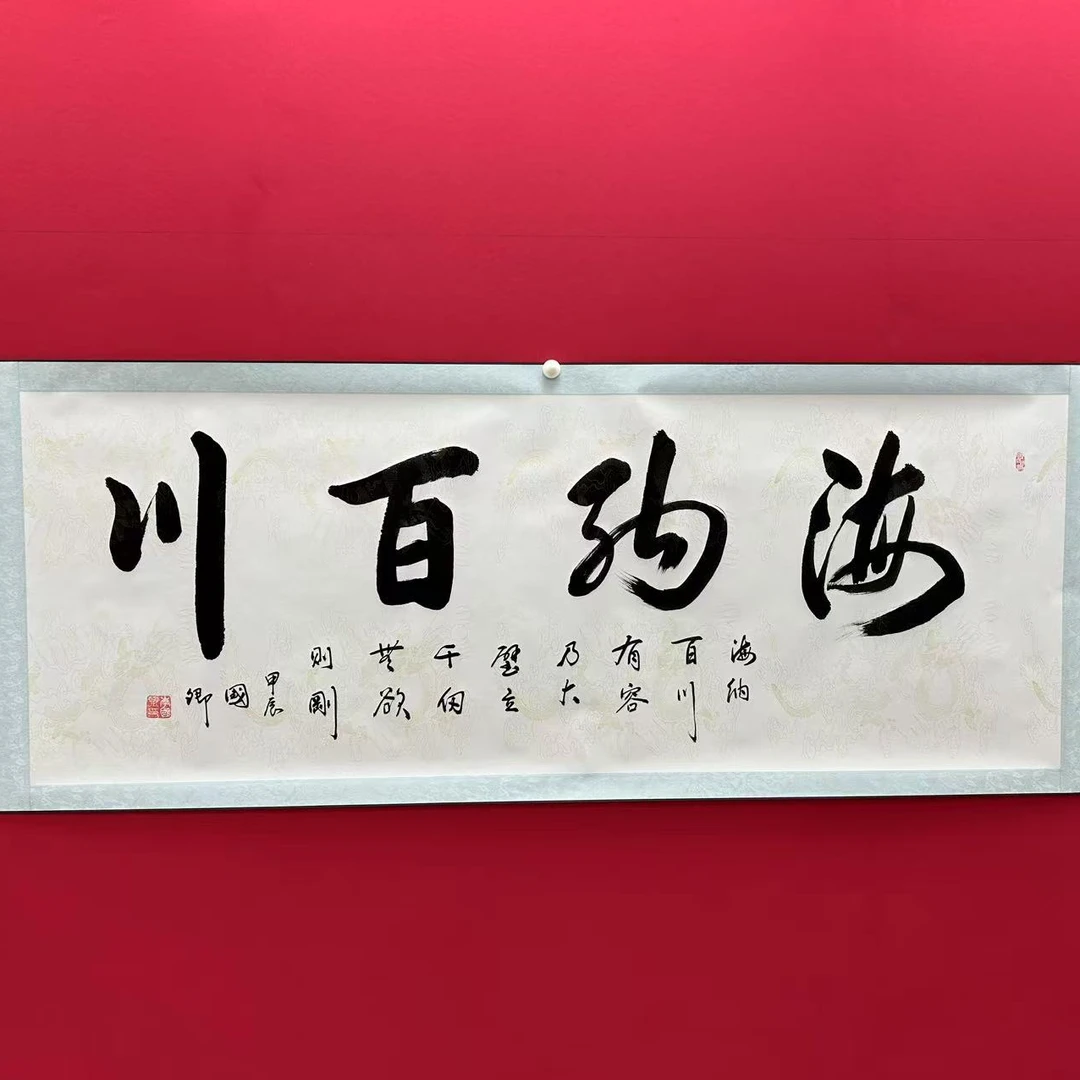 海納百川
海納
百川
有容
乃大
壁立
千仞
無欲
則剛
甲辰
國
卿